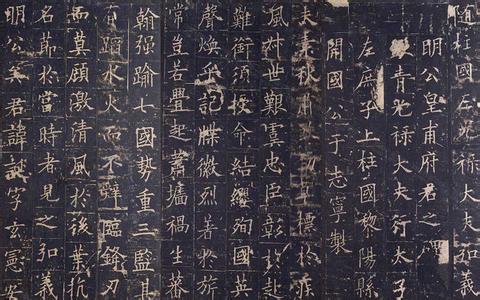 隨柱國左光祿大夫弘義
明公皇甫府君之碑
銀青光祿大夫行太子
左庶子上柱國黎陽縣
開國公于志寧製
夫素秋肅煞勁草標於疾
風叔世艱虞忠臣彰於赴
難銜須授命結纓殉國英
聲煥乎記牒徽烈著於旂
常豈若舋起蕭牆禍生蕃
翰強踰七國勢重三監其
有蹈水火而不辭臨鋒刃
而莫顧激清風於後葉抗
名節於當時者見之弘義
明公矣君諱誕字玄憲安